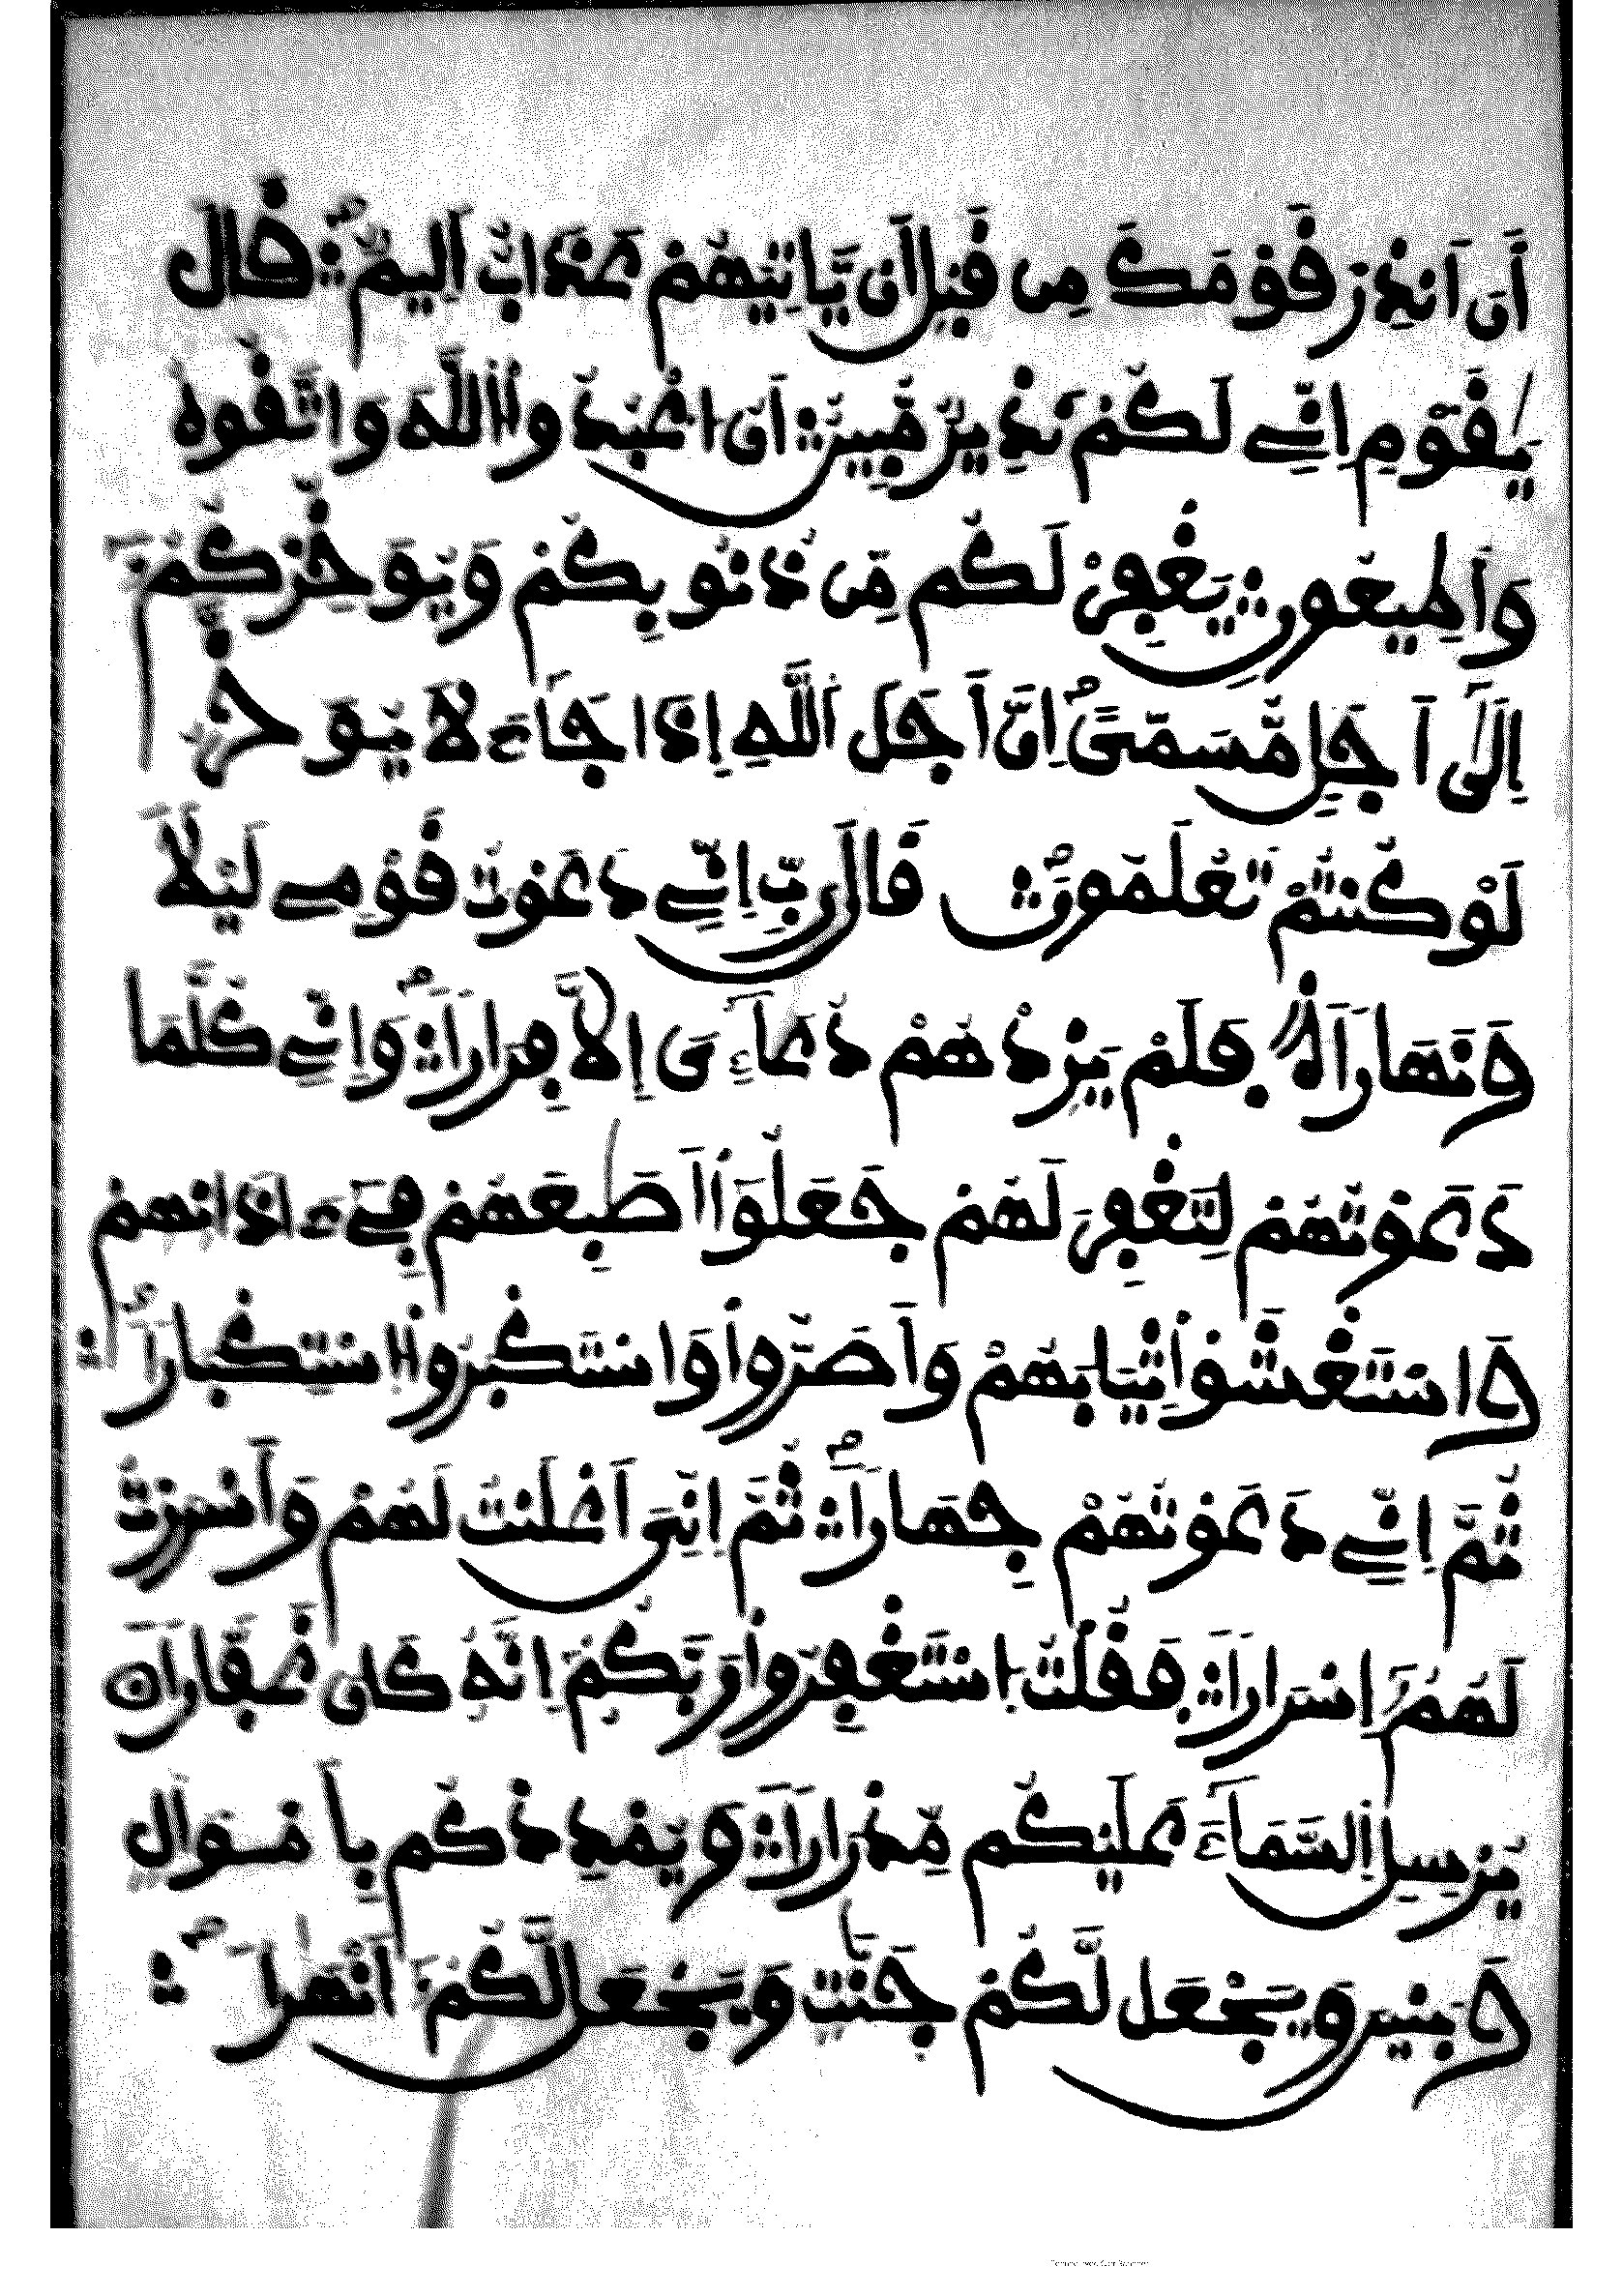 أَنَ اَنذِرْ قَوْمَكَ مِن قَبْلِ أَنْ يَّاتِيَهُمْ عَذَابٌ اَلِيمٌ قَالَ
يَٰقَوْمِ إِنِّے لَكُمْ نَذِيرٌ مُّبِينٌ أَنُ اعْبُدُواْ اللَّهَ وَاتَّقُوهُ
وَأَطِيعُونِ يَغْفِرْ لَكُم مِّن ذُنُوبِكُمْ وَيُوَخِّرْكُمُ
إِلَىٰ أَجَلٍ مُّسَمًّى اِنَّ أَجَلَ اَللَّهِ إِذَا جَاءَ لَا يُوَخَّرُ
لَوْ كُنتُمْ تَعْلَمُونَ قَالَ رَبِّ إِنِّے دَعَوْتُ قَوْمِے لَيْلاً
وَنَهَاراً فَلَمْ يَزِدْهُمْ دُعَاءِىَ إِلَّا فِرَاراً وَإِنِّے كُلَّمَا
دَعَوْتُهُمْ لِتَغْفِرَ لَهُمْ جَعَلُواْ أَصَٰبِعَهُمْ فِے ءَاذَانِهِمْ
وَاسْتَغْشَوْاْ ثِيَابَهُمْ وَأَصَرُّواْ وَاسْتَكْبَرُواْ اسْتِكْبَاراً
ثُمَّ إِنِّے دَعَوْتُهُمْ جِهَاراً ثُمَّ إِنِّىَ أَعْلَنتُ لَهُمْ وَأَسْرَرْتُ
لَهُمُ إِسْرَاراً فَقُلْتُ اسْتَغْفِرُواْ رَبَّكُمُ إِنَّهُ كَانَ غَفَّاراً
يُرْسِلِ اِلسَّمَاءَ عَلَيْكُم مِّدْرَاراً وَيُمْدِدْكُم بِأَمْوَالٍ
وَبَنِينَ وَيَجْعَل لَّكُمْ جَنَّٰتٍ وَيَجْعَل لَّكُمُ أَنْهَٰراً